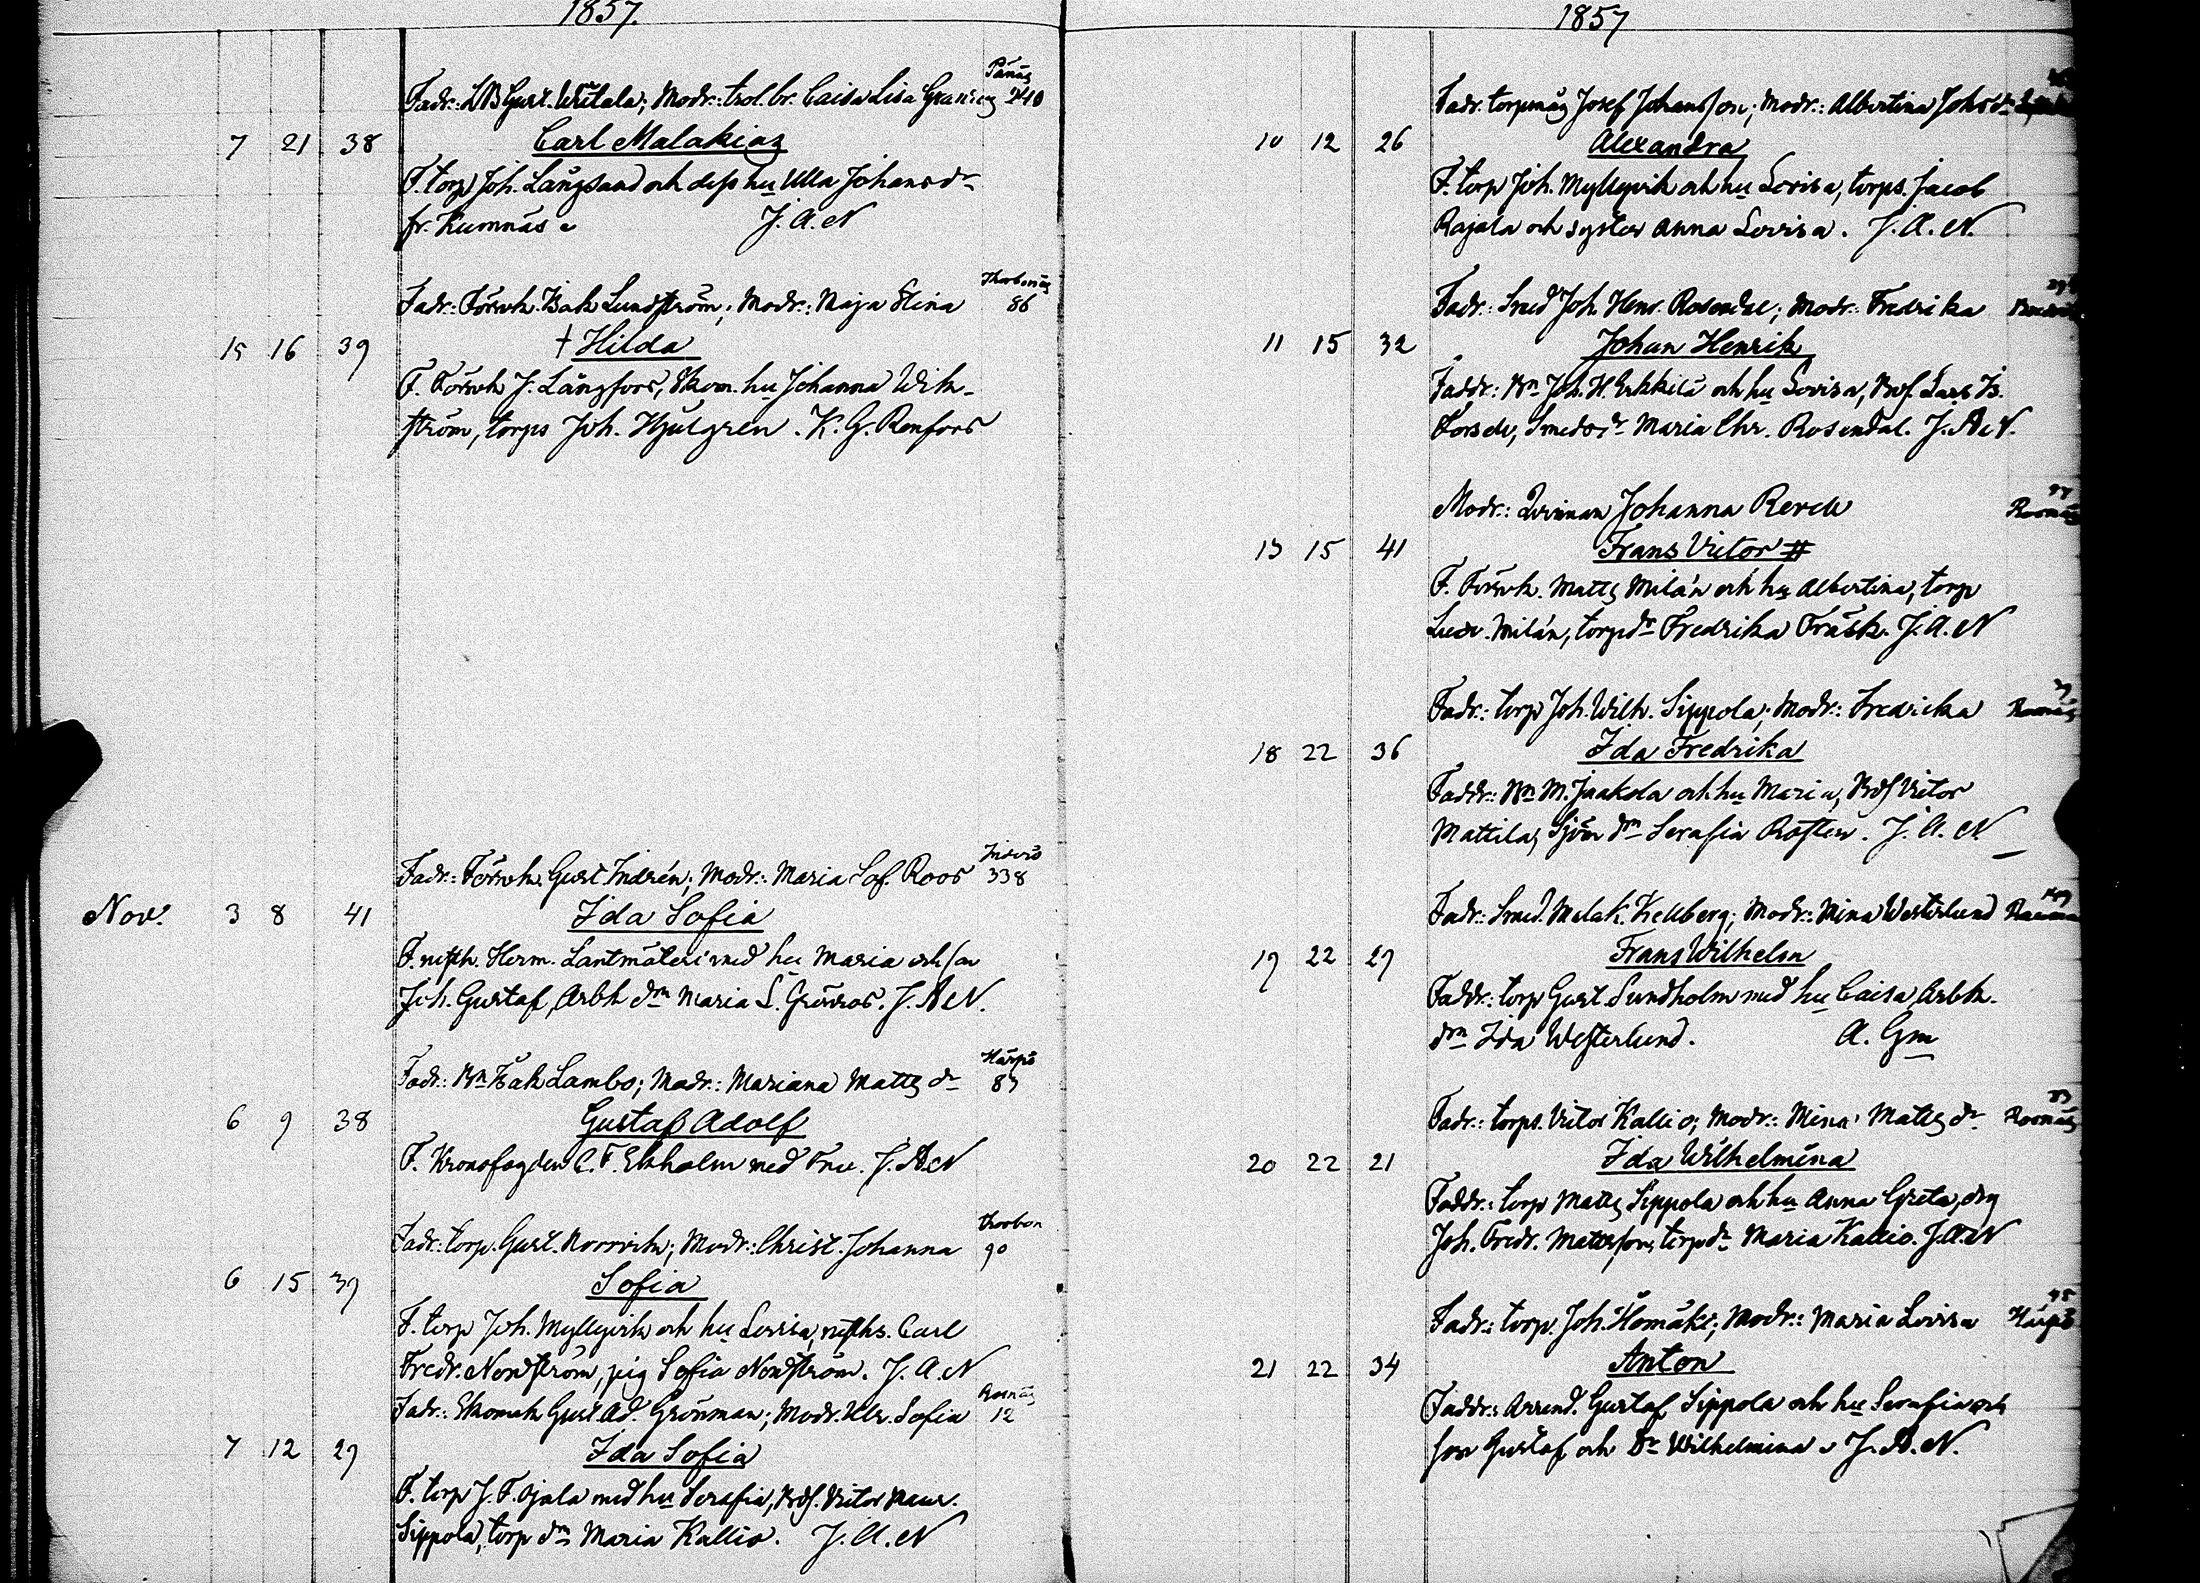 1857.
Fadr: LB Gust. Witala; Modr: trol. br. Caisa Lisa
7 21 38 Carl Malakias
F. torp Joh. Långsand och dess hu Ulla Johansdr
fr. Kumnäs J. A. N
Fadr: Försvk. Isak Lundström; Modr: Maja Stina Thorbonäs 86
15 16 39 † Hilda
F. Försvk J. Långfors, Skom. hu Johanna Wik-
ström, torps Joh. Hjulgren. K. G. Renfors
Fadr: Försvk. Gust. Indrén; Modr: Maria Sof. Roos 338
Nov. 3 8 41 Ida Sofia
F. Herm. Lantmäteri med hu Maria och son
Joh. Gustaf, Arbk dm Maria L. Grönroos. J. A. N.
Fadr: Bn Isak Lambo; Modr: Mariana Matts dr Härpö 87
6 9 38 Gustaf Adolf
F. Kronofogden C. F. Ekholm med Fru. J. A. N
Fadr: torp. Gust. Norrvik; Modr: Christ. Johanna Thorbon 90
6 15 39 Sofia
F. torp Joh. Myllyvik och hu Lovisa, Carl
Fredr. Nordström, pig Sofia Nordström. J. A. N
Fadr: Skomak Gust. Ad. Grönman; Modr. Ulr. Sofia Rosnäs 12
7 12 29 Ida Sofia
F. torp J. F. Ojala med hu Serafia, Bds. Victor
Sippola, torp dm Maria Kallio. J. A. N
1857
Fadr. torpmåg Josef Johansson; Modr: Albertina Johsdr
10 12 26 Alexandra
F. torp Joh. Myllyvik och hu Lovisa, torps. Jacob
Rajala och syster Anna Lovisa. J. A. N.
Fadr: Smed Joh. Henr. Rosendal; Modr: Fredrika
11 15 32 Johan Henrik
Faddr: Bn Joh. H. Erkkilä och hu Lovisa, Lars Is.
Smedsdr Maria Chr. Rosendal. J. A. N.
Modr: Qvinnan Johanna Rosnäs
13 15 41 Frans Victor #
F. Försvk. Matts Milán och hu Albertina, torp
Milán, torpdr Fredrika Träsk. J. A. N
Fadr: torp Joh. Wilh. Sippola; Modr: Fredrika Rosnäs
18 22 36 Ida Fredrika
Faddr: Bn M. Jaakola och hu Maria, Bds Victor
Mattila, Sjöm dm Serafia Rosten. J. A. N
Fadr: Smed. Malak. Kellberg; Modr: Mina Westerlund
19 22 29 Frans Wilhelm
Faddr: torp Gust. Sundholm med hu Caisa, Arbk.
dm Ida Westerlund. A. Gm
Fadr: torps. Victor Kallio; Modr: Mina Matts dr Rosnäs
20 22 21 Ida Wilhelmina
Faddr: torp Matts Sippola och hu Anna Greta, drg
Joh. Fredr. Mattsson, torpdr Maria Kallio. J. A. N
Fadr: torp. Joh. Homäki; Modr: Maria Lovisa Härpö
21 22 34 Anton
Faddr: Arrend. Gustaf Sippola och hu Serafia och
son Gustaf och Dr Wilhelmina. J. A. N.